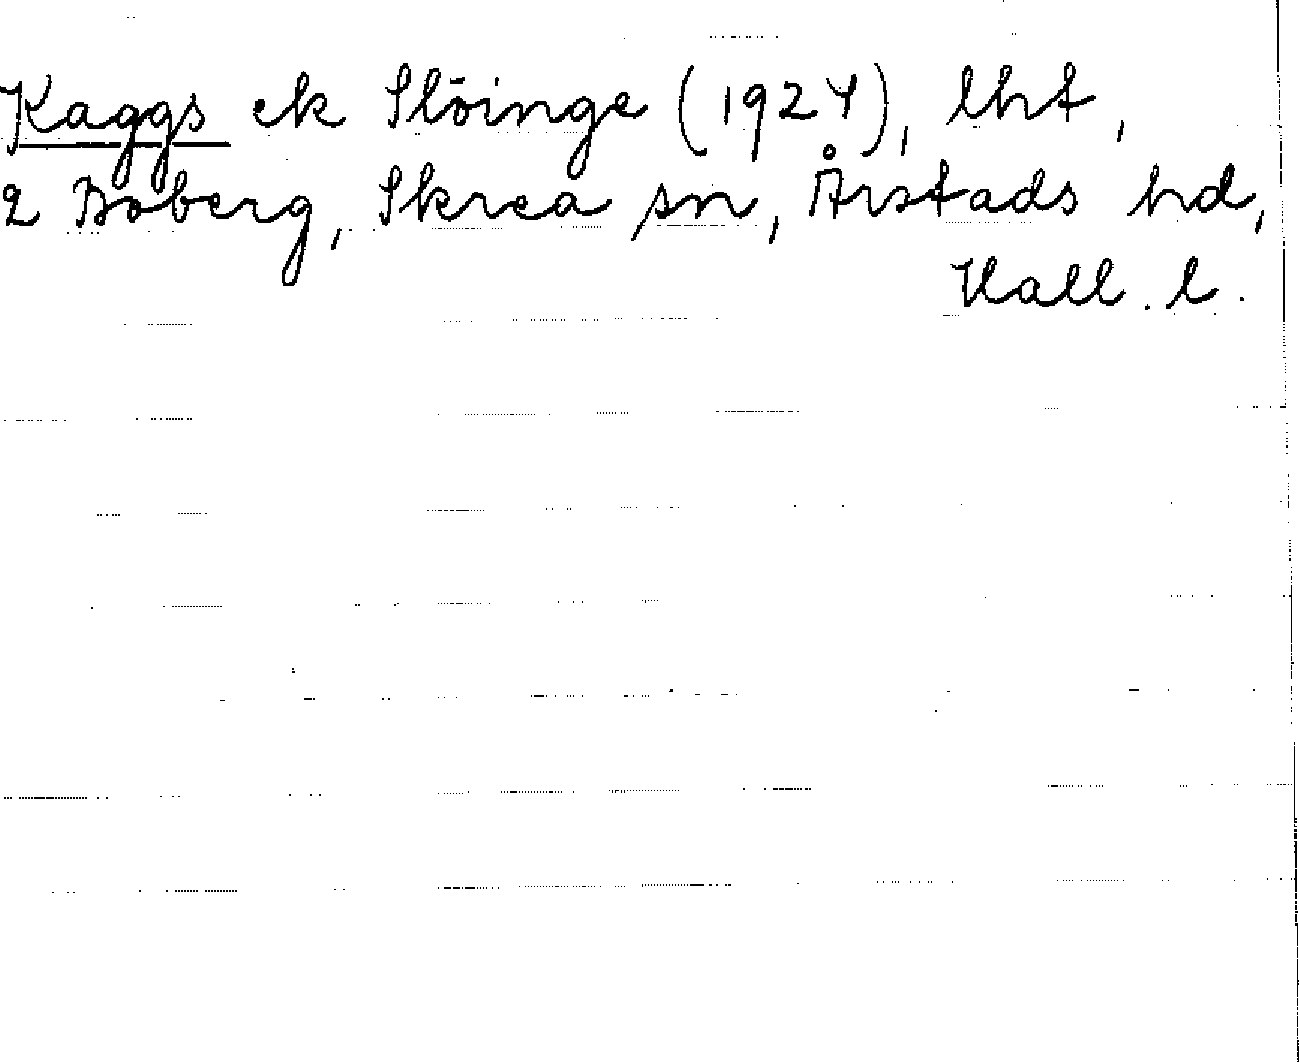 Kaggs ek Slöinge (1924), lht,
2 Boberg, Skrea sn, Årstads hd,
Hall. l.